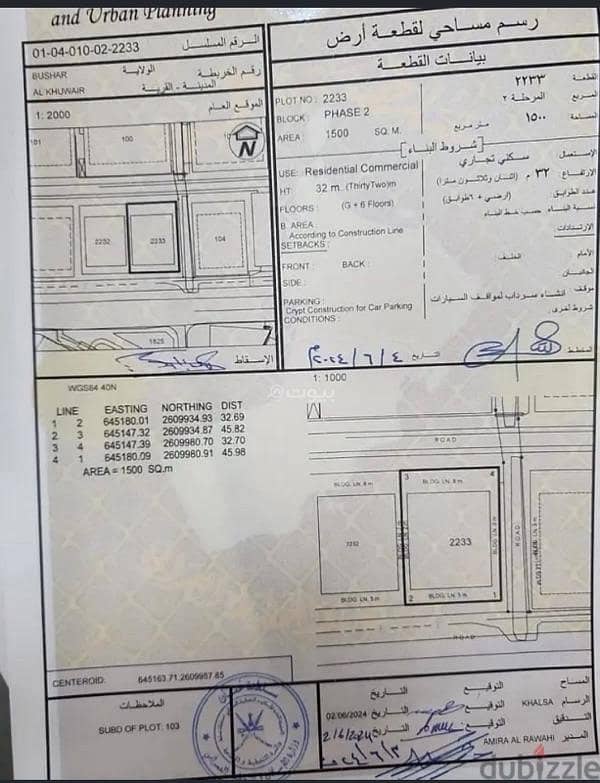 and Urban Planning
رسم مساحي لقطعة أرض
01-04-010-02-2233 الرقم المسلسل
BUSHAR الولاية رقم الخريطة
AL KHUWAIR المدينة - القرية
1: 2000 الموقع العام
101
100
N
2232
2233
104
1825
الإسقاط
بيانات القطعة
PLOT NO : 2233 ٢٢٣٣ القطعة
BLOCK : PHASE 2 المرحلة ٢ المربع
AREA : 1500 SQ. M. متر مربع ١٥٠٠ المساحة
شروط البناء
USE: Residential Commercial سكني تجاري الإستعمال
HT: 32 m. (ThirtyTwo)m ٣٢ م (اثنان وثلاثون مترا) الإرتفاع
FLOORS : (G + 6 Floors) (أرضي + ٦طوابق) عدد الطوابق
B. AREA : According to Construction Line حسب خط البناء نسبة البناء
SETBACKS : الإرتدادات
FRONT : BACK : الخلف الأمام
SIDE : الجانبان
PARKING : موقف
Crypt Construction for Car Parking انشاء سرداب لمواقف السيارات
CONDITIONS : شروط أخرى
المخطط التاريخ ٢٠٢٤/٦/٤
1: 1000
WGS84 40N
LINE EASTING NORTHING DIST
1 2 645180.01 2609934.93 32.69
2 3 645147.32 2609934.87 45.82
3 4 645147.39 2609980.70 32.70
4 1 645180.09 2609980.91 45.98
AREA = 1500 SQ.m
بيوت
ROAD
BLDG. LN. 8 m
BLDG LN. 8 m.
3
4
2232
2233
ROAD
BLDG LN. 5 m
2
BLDG LN. 5 m.
1
ROAD
CENTEROID: 645163.71,2609957.85
الملاحظات
SUBD OF PLOT: 103
المساح التوقيع التاريخ
الرسام KHALSA التوقيع التاريخ 02/06/2024
التدقيق التوقيع التاريخ 2/6/2024
المدير AMIRA AL RAWAHI
dubizzle